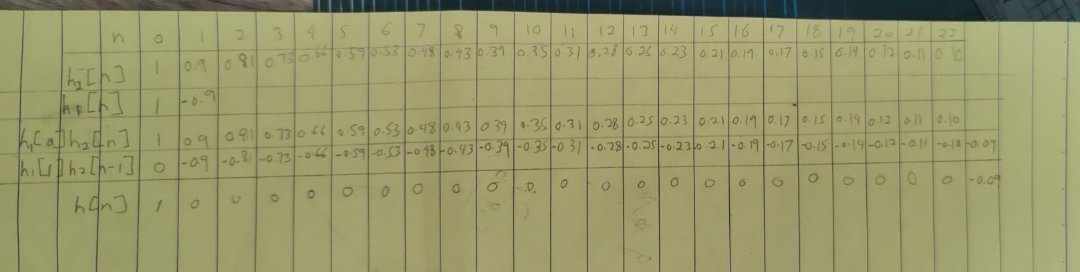 n 0 1 2 3 4 5 6 7 8 9 10 11 12 13 14 15 16 17 18 19 20 21 22
h₂[n] 1 0.9 0.81 0.73 0.66 0.59 0.53 0.48 0.43 0.39 0.35 0.31 0.28 0.25 0.23 0.21 0.19 0.17 0.15 0.14 0.12 0.11 0.10
h₁[n] 1 -0.9
h₁[0]h₂[n] 1 0.9 0.81 0.73 0.66 0.59 0.53 0.48 0.43 0.39 0.35 0.31 0.28 0.25 0.23 0.21 0.19 0.17 0.15 0.14 0.12 0.11 0.10
h₁[1]h₂[n-1] 0 -0.9 -0.81 -0.73 -0.66 -0.59 -0.53 -0.48 -0.43 -0.39 -0.35 -0.31 -0.28 -0.25 -0.23 -0.21 -0.19 -0.17 -0.15 -0.14 -0.12 -0.11 -0.10 -0.09
h[n] 1 0 0 0 0 0 0 0 0 0 0 0 0 0 0 0 0 0 0 0 0 0 0 -0.09